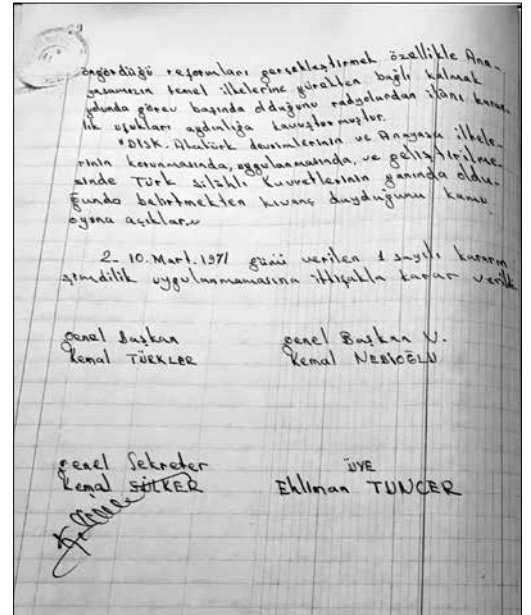 öngördüğü reformları gerçekleştirmek özellikle Ana-
yasamızın temel ilkelerine yürekten bağlı kalmak
yolunda görev başında olduğunu radyolardan ilânı karan-
lık ufukları aydınlığa kavuşturmuştur.
"DİSK. Atatürk devrimlerinin ve Anayasa ilkele-
rinin korunmasında, uygulanmasında, ve geliştirilme-
sinde Türk silâhlı Kuvvetlerinin yanında oldu-
ğunda belirtmekten kıvanç duyduğunu kamu
oyuna açıklar."
2- 10. Mart. 1971 günü verilen 1 sayılı kararın
şimdilik uygulanmamasına ittifakla karar verildi.
genel Başkan genel Başkan V.
Kemal TÜRKLER Kemal NEBİOĞLU
genel Sekreter ÜYE
Kemal SÜLKER Ehliman TUNCER